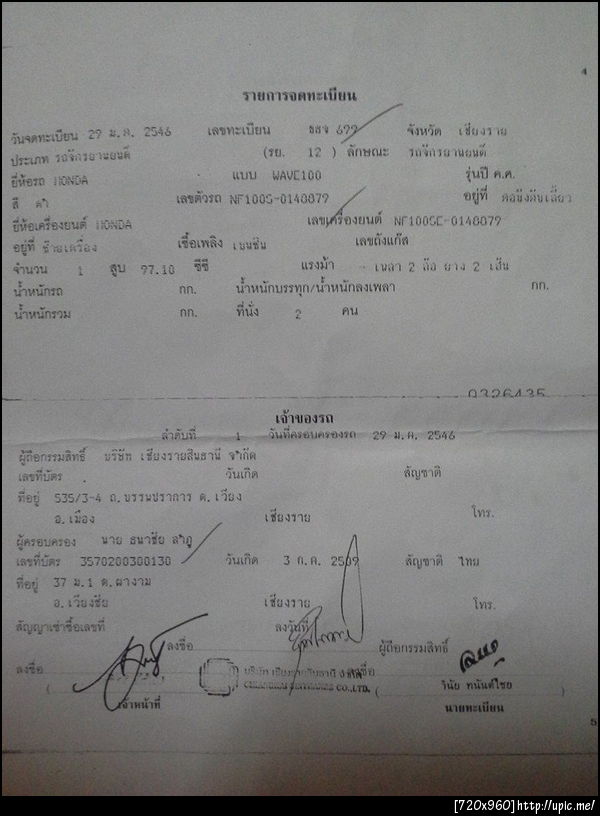 4
รายการจดทะเบียน
วันจดทะเบียน 29 ม.ค. 2546 เลขทะเบียน ธธจ 699 จังหวัด เชียงราย
ประเภท รถจักรยานยนต์ (รย. 12 ) ลักษณะ รถจักรยานยนต์
ยี่ห้อรถ HONDA แบบ WAVE100 รุ่นปี ค.ศ.
สี ดำ เลขตัวรถ NF100S-0148879 อยู่ที่ คอบังคับเลี้ยว
ยี่ห้อเครื่องยนต์ HONDA เลขเครื่องยนต์ NF100SE-0148879
อยู่ที่ ซ้ายเครื่อง เชื้อเพลิง เบนซิน เลขถังแก๊ส
จำนวน 1 สูบ 97.10 ซีซี แรงม้า - เพลา 2 ล้อ ยาง 2 เส้น
น้ำหนักรถ กก. น้ำหนักบรรทุก/น้ำหนักลงเพลา กก.
น้ำหนักรวม กก. ที่นั่ง 2 คน
0326435
เจ้าของรถ
ลำดับที่ 1 วันที่ครอบครองรถ 29 ม.ค. 2546
ผู้ถือกรรมสิทธิ์ บริษัท เชียงรายสินธานี จำกัด
เลขที่บัตร วันเกิด สัญชาติ
ที่อยู่ 535/3-4 ถ.บรรพปราการ ต.เวียง
อ.เมือง เชียงราย โทร.
ผู้ครอบครอง นาย ธนาชัย
เลขที่บัตร 3570200300130 วันเกิด 3 ก.ค. 2509 สัญชาติ ไทย
ที่อยู่ 37 ม.1 ต.ผางาม
อ.เวียงชัย เชียงราย โทร.
สัญญาเช่าซื้อเลขที่ ลงวันที่
ลงชื่อ ผู้ถือกรรมสิทธิ์
ลงชื่อ บริษัท เชียงรายสินธานี จำกัด ลงชื่อ
CO.,LTD. ( วินัย ทนันต์ไชย )
เจ้าหน้าที่ นายทะเบียน
5
[720x960]http://upic.me/